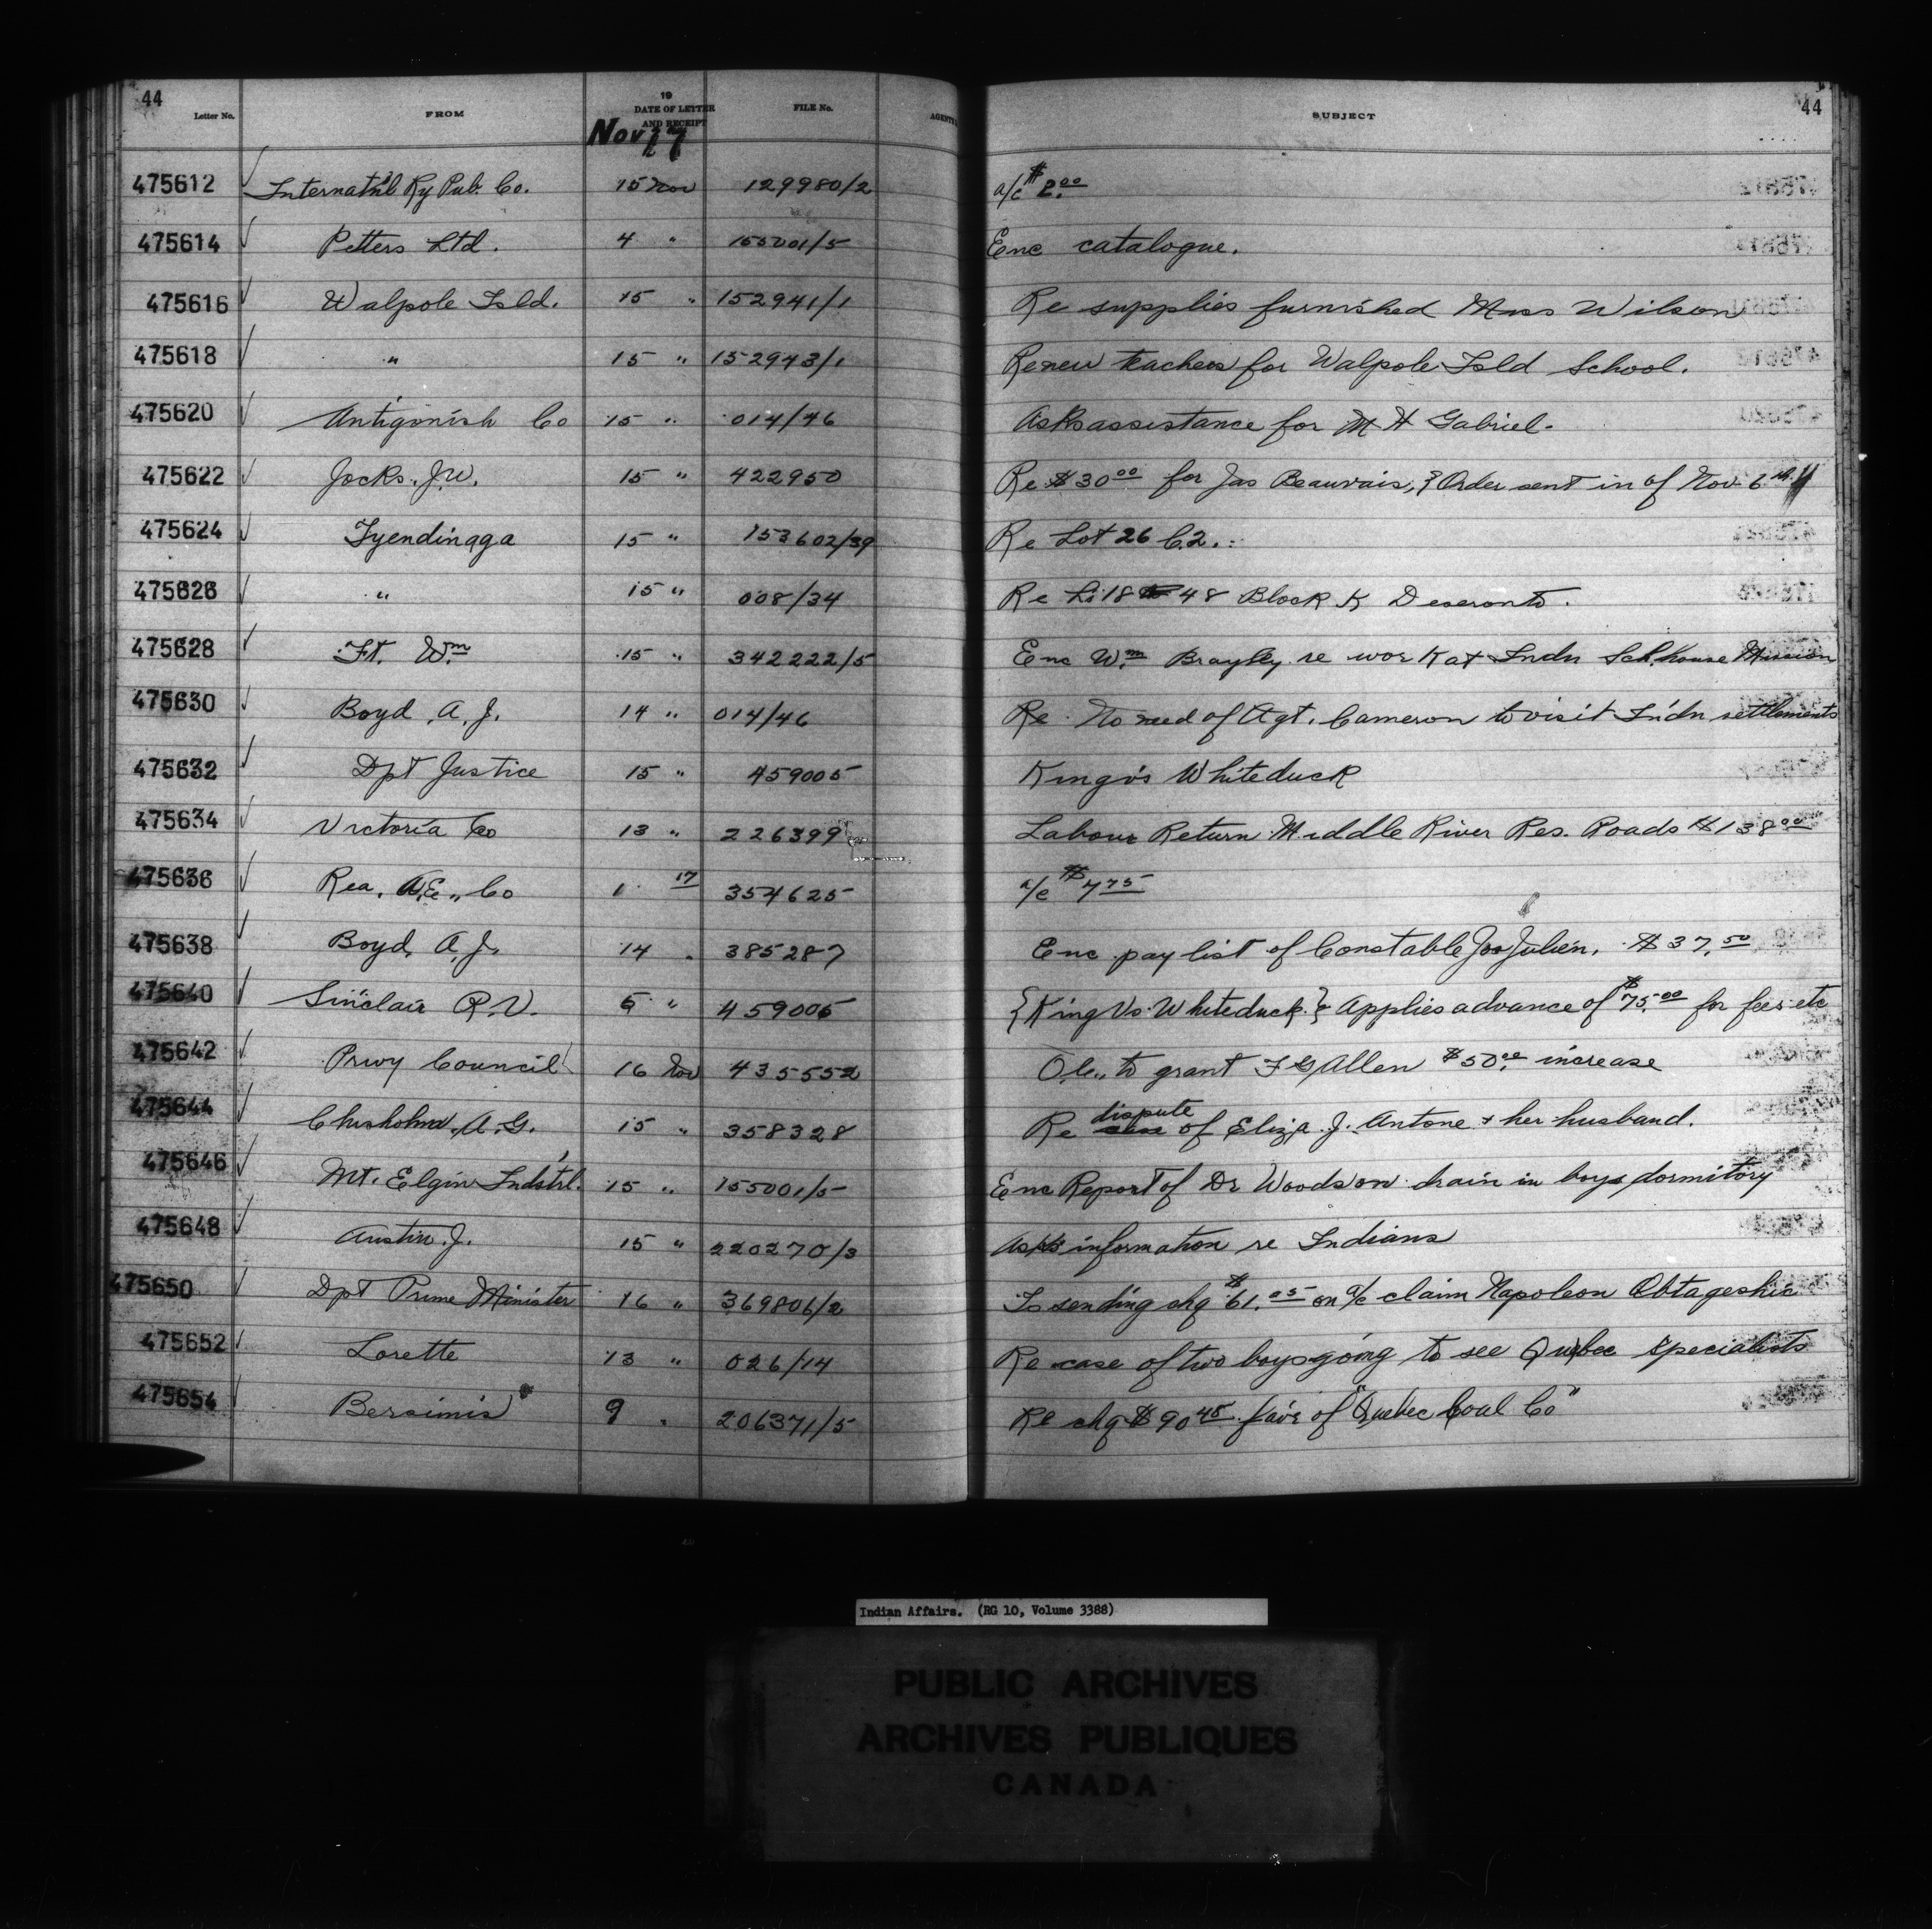 44
Letter No. FROM 19 DATE OF LETTER AND RECEIPT FILE No. SUBJECT 44
Nov 17
475612 Internat'nl Ry Pub. Co. 15 Nov 129980/2 a/c $2.00
475614 Petters Ltd. 4 " 155001/5 Enc catalogue.
475616 Walpole Isld. 15 " 152941/1 Re supplies furnished Miss Wilson
475618 " 15 " 152943/1 Re new teachers for Walpole Isld School.
475620 Antigonish Co 15 " 014/46 Asks assistance for M H Gabriel.
475622 Jocks. J.W. 15 " 422950 Re $30.00 for Jas Beauvais, & Order sent in of Nov 6th
475624 Tyendinaga 15 " 153602/39 Re Lot 26 C.2.
475626 " 15 " 008/34 Re Lt 18 48 Block K Deseronto.
475628 Ft. Wm 15 " 342222/5 Enc Wm Brayley re work at Indn Schhouse Mission
475630 Boyd, A. J. 14 " 014/46 Re No need of Agt. Cameron to visit Indn settlements
475632 Dpt Justice 15 " 459005 King vs Whiteduck
475634 Victoria Co 13 " 226399 Labour Return Middle River Res. Roads $138.00
475636 Rea, A.E., Co 1 17 354625 a/c $7.75
475638 Boyd, A. J. 14 " 385287 Enc pay list of Constable Jos Julien. $37.50
475640 Sinclair R.V. 5 " 459005 {King Vs Whiteduck} Applies advance of $75.00 for fees etc
475642 Privy Council 16 Nov 435552 O.C., to grant F G Allen $50.00 increase
475644 Chisholm, A.G. 15 " 358328 Re dispute of Eliza J. Antone & her husband.
475646 Mt. Elgin Indstrl. 15 " 155001/5 Enc Report of Dr Woods on drain in boys dormitory
475648 Austin. J. 15 " 220270/3 Asks information re Indians
475650 Dpt Prime Minister 16 " 369806/2 Is sending chq $61.05 on a/c claim Napoleon Obtageshic
475652 Lorette 13 " 026/14 Re case of two boys going to see Quebec specialists
475654 Bersimis 9 " 206371/5 Re chq $90.45 favr of "Quebec Coal Co"
Indian Affairs. (RG 10, Volume 3388)
PUBLIC ARCHIVES
ARCHIVES PUBLIQUES
CANADA